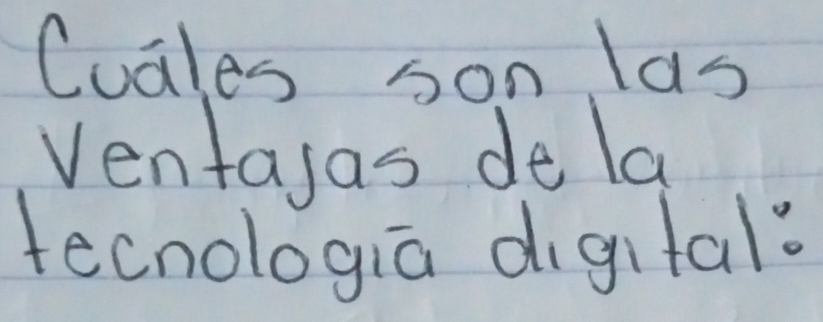 Cuáles son las
ventajas de la
tecnologiá digital: